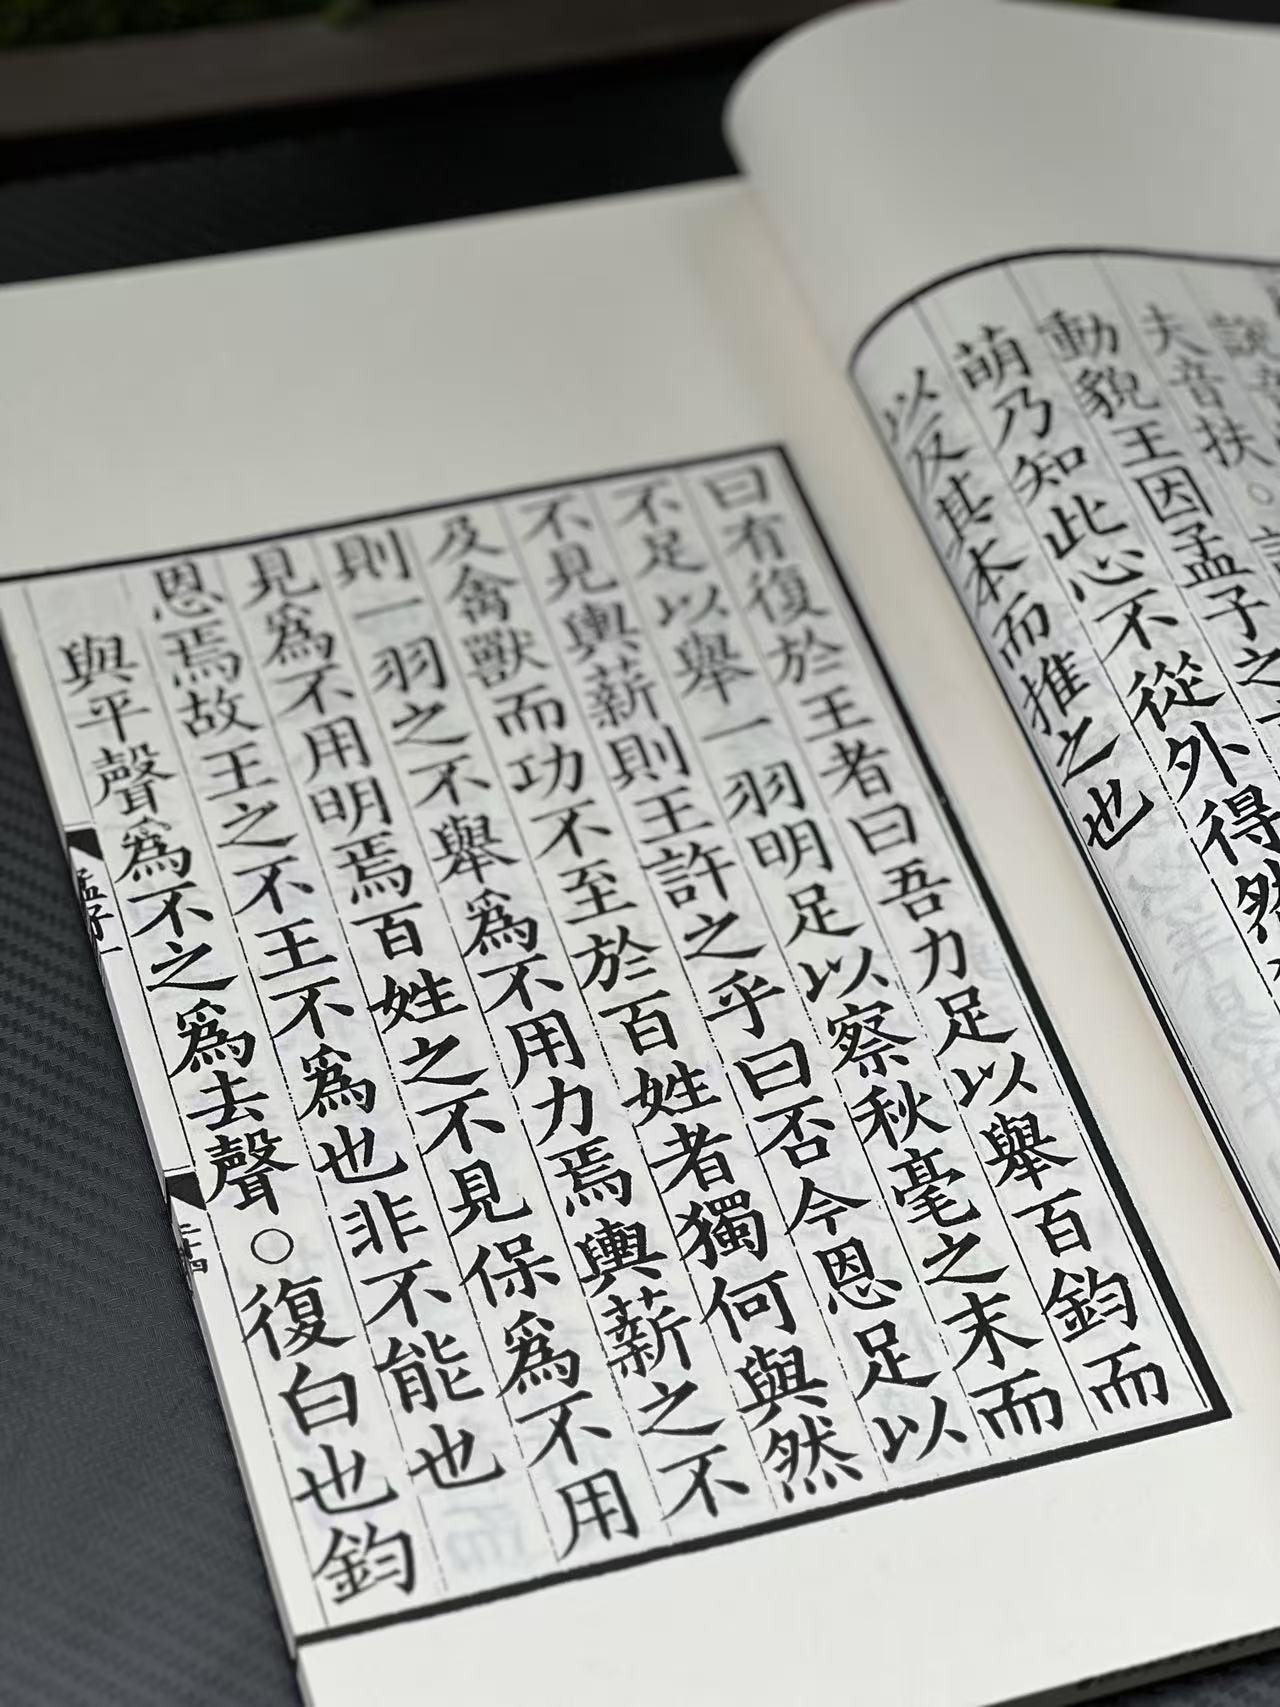 說音
夫音扶○
動貌王因孟子之
萌乃知此心不從外得然
以反其本而推之也
曰有復於王者曰吾力足以舉百鈞而
不足以舉一羽明足以察秋毫之末而
不見輿薪則王許之乎曰否今恩足以
及禽獸而功不至於百姓者獨何與然
則一羽之不舉爲不用力焉輿薪之不
見爲不用明焉百姓之不見保爲不用
恩焉故王之不王不爲也非不能也
與平聲爲不之爲去聲○復白也鈞
孟子一
二十四